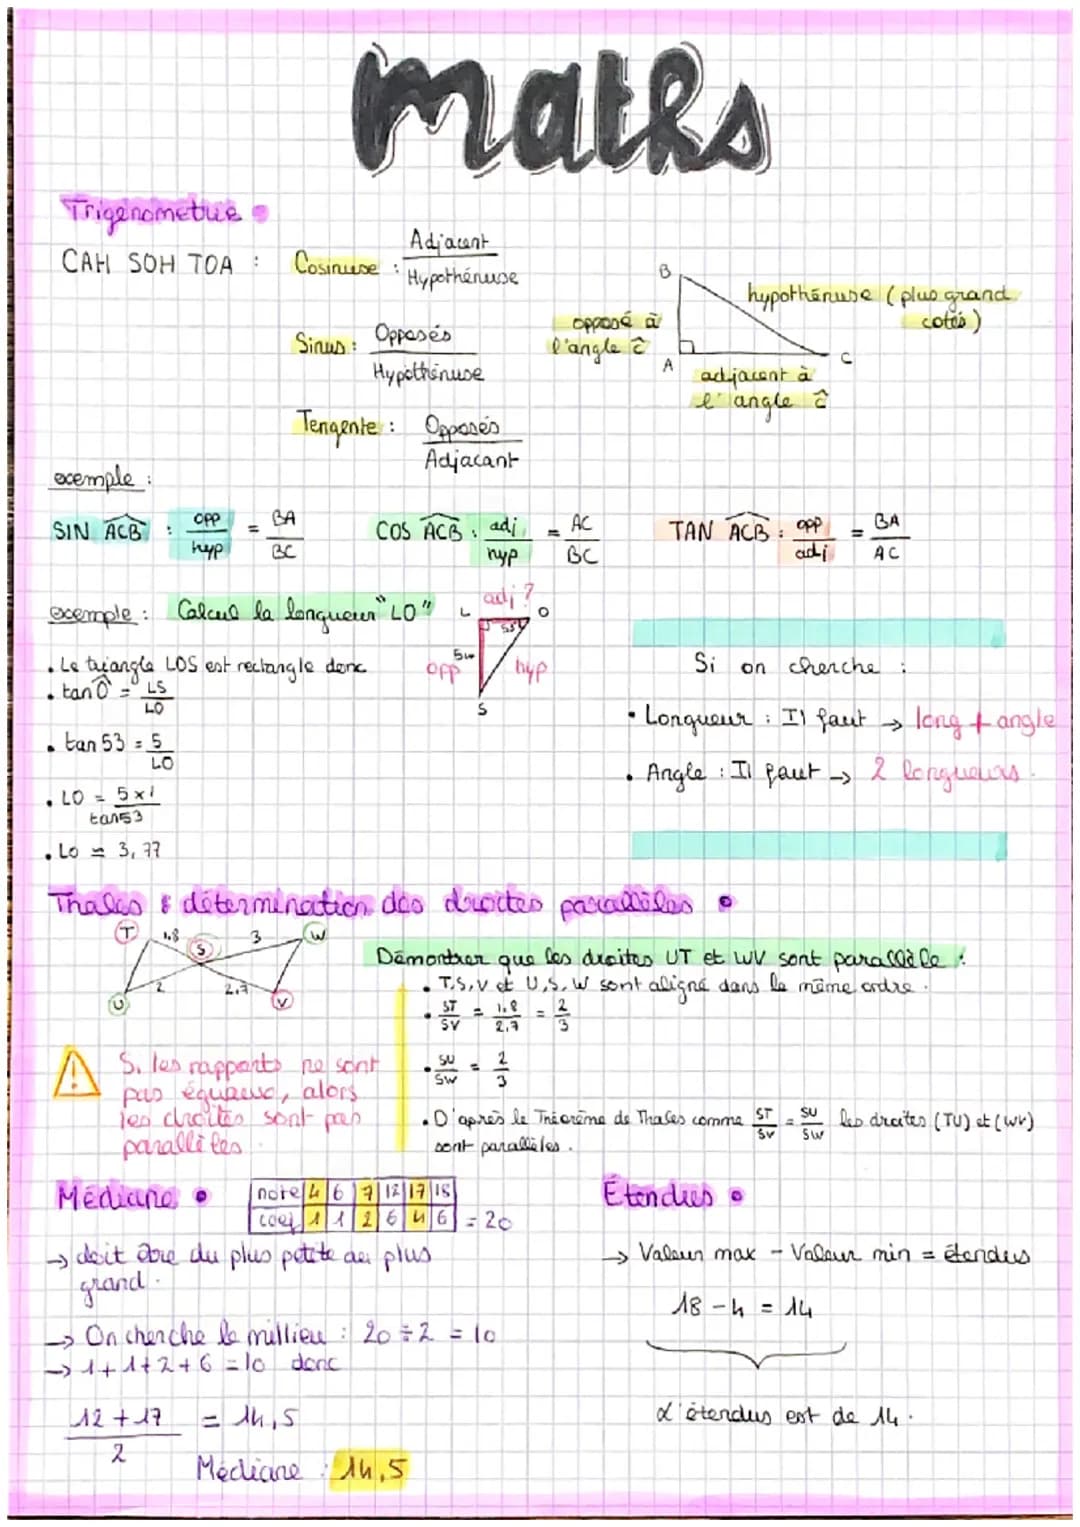 maths
Trigonometrie
CAH SOH TOA : Cosinuse : Adjacent
Hypothénuse
Sinus : Opposés
Hypothénuse
Tengente : Opposés
Adjacant
B
hypothénuse (plus grand
cotés)
opposé à
l'angle ĉ
A
C
adjacent à
l'angle ĉ
exemple :
SIN ACB : opp / hyp = BA / BC
COS ACB : adj / hyp = AC / BC
TAN ACB : opp / adj = BA / AC
exemple : Calcul la longueur "LO"
L adj ? O
53
5
opp hyp
S
• Le triangle LOS est rectangle donc
• tan Ô = LS / LO
• tan 53 = 5 / LO
• LO = 5 x 1 / tan53
• Lo ≃ 3,77
Si on cherche :
• Longueur : Il faut → long + angle
• Angle : Il faut → 2 longueurs.
Thales : détermination des droites parallèles
T 1,8 S 3 W
U 2 2,7 V
Démontrer que les droites UT et WV sont parallèle :
• T,S,V et U,S,W sont aligné dans le même ordre.
• ST / SV = 1,8 / 2,7 = 2 / 3
• SU / SW = 2 / 3
• D'après le Théorème de Thales comme ST / SV = SU / SW les droites (TU) et (WV)
sont parallèles.
Si les rapports ne sont
pas équaux, alors
les droites sont pas
parallèles.
Médiane
note 4 6 7 12 17 18
coef 1 1 2 6 4 6 = 20
→ doit être du plus petite au plus
grand.
→ On cherche le millieu : 20 ÷ 2 = 10
→ 1+1+2+6 = 10 donc
12 + 17 / 2 = 14,5
Médiane : 14,5
Étendues
→ Valeur max - Valeur min = étendues
18 - 4 = 14
L'étendues est de 14.